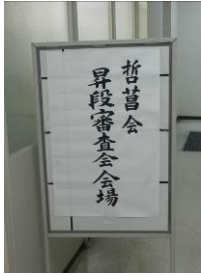 哲菖会
昇段審査会会場